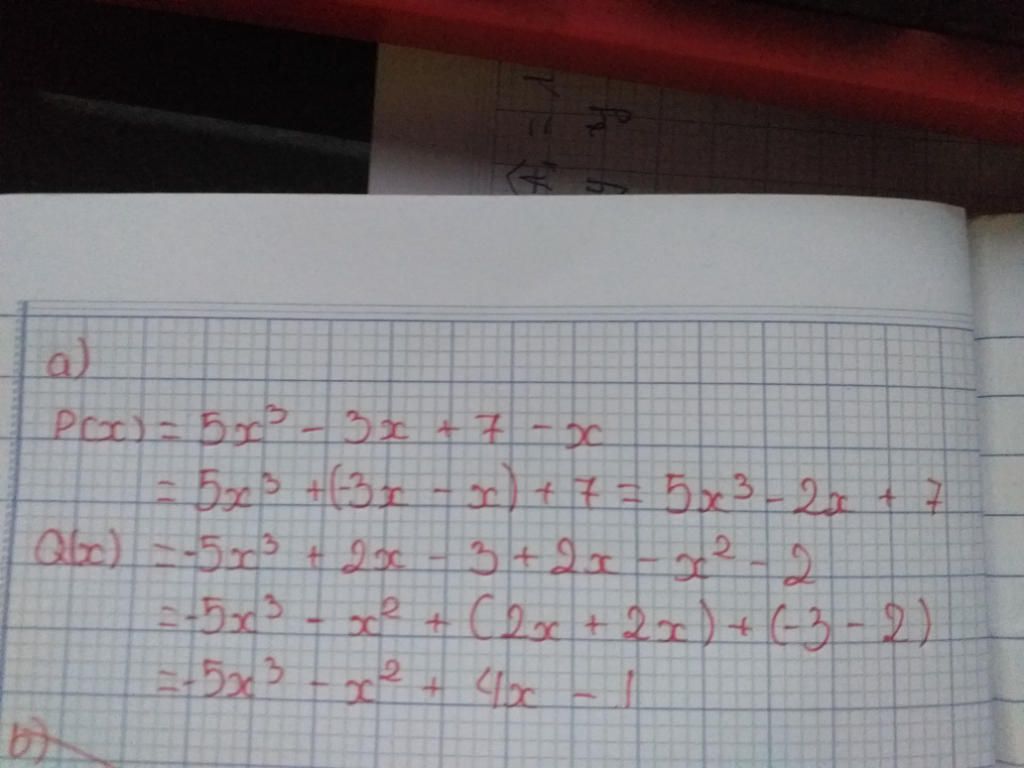 a)
P(x) = 5x³ - 3x + 7 - x
= 5x³ + (-3x - x) + 7 = 5x³ - 2x + 7
Q(x) = -5x³ + 2x - 3 + 2x - x² - 2
= -5x³ - x² + (2x + 2x) + (-3 - 2)
= -5x³ - x² + 4x - 1
b)